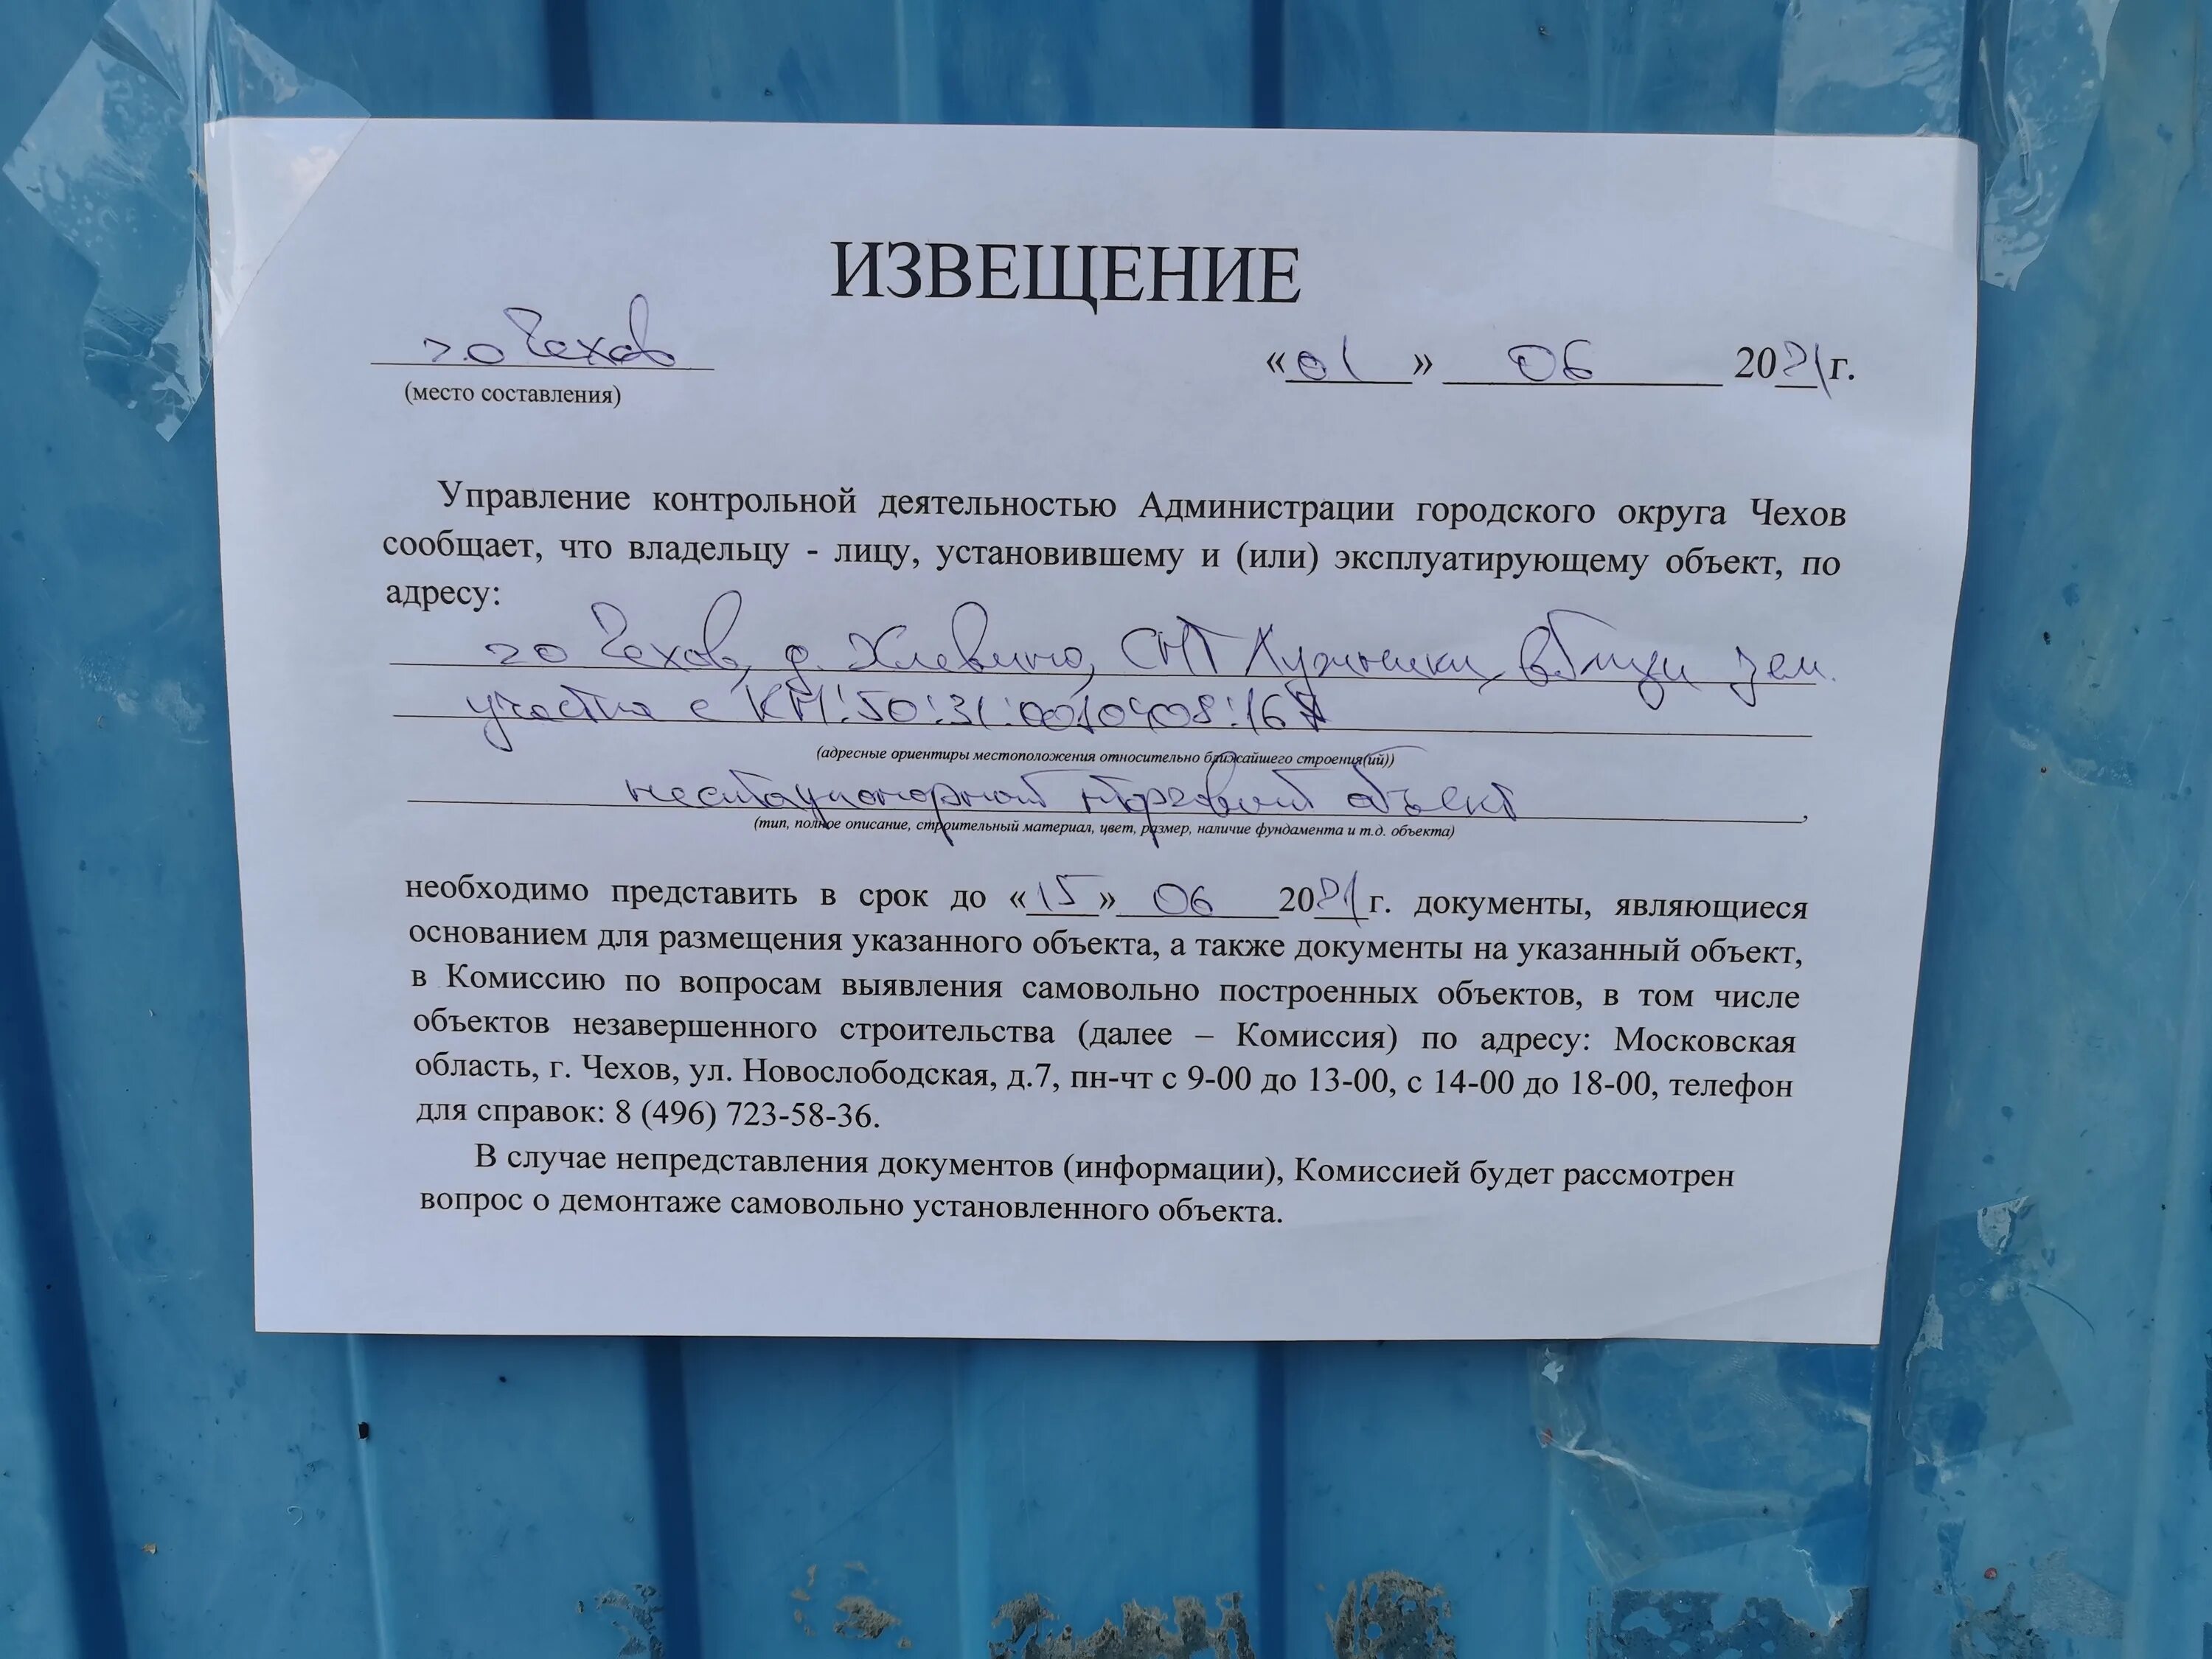 ИЗВЕЩЕНИЕ
г.о Чехов «01» 06 2021г.
(место составления)
Управление контрольной деятельностью Администрации городского округа Чехов
сообщает, что владельцу - лицу, установившему и (или) эксплуатирующему объект, по
адресу:
го Чехов, д. Хлевино, СНТ Лужники, вблизи зем.
участка с КН:50:31:0010408:167
(адресные ориентиры местоположения относительно ближайшего строения(ий))
нестационарный торговый объект,
(тип, полное описание, строительный материал, цвет, размер, наличие фундамента и т.д. объекта)
необходимо представить в срок до «15» 06 2021г. документы, являющиеся
основанием для размещения указанного объекта, а также документы на указанный объект,
в Комиссию по вопросам выявления самовольно построенных объектов, в том числе
объектов незавершенного строительства (далее – Комиссия) по адресу: Московская
область, г. Чехов, ул. Новослободская, д.7, пн-чт с 9-00 до 13-00, с 14-00 до 18-00, телефон
для справок: 8 (496) 723-58-36.
В случае непредставления документов (информации), Комиссией будет рассмотрен
вопрос о демонтаже самовольно установленного объекта.